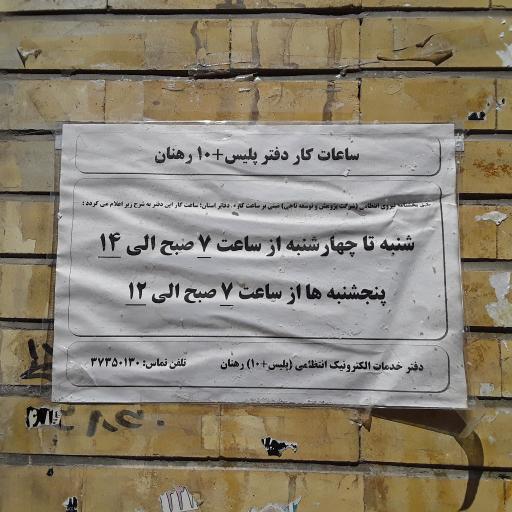 ساعات کار دفتر پلیس+۱۰ رهنان
طبق بخشنامه نیروی انتظامی (شرکت پژوهش و توسعه ناجی) مبنی بر ساعت کار دفاتر استان؛ ساعت کار این دفتر به شرح زیر اعلام می گردد:
شنبه تا چهارشنبه از ساعت ۷ صبح الی ۱۴
پنجشنبه ها از ساعت ۷ صبح الی ۱۲
دفتر خدمات الکترونیک انتظامی (پلیس+۱۰) رهنان تلفن تماس: ۳۷۳۵۰۱۳۰